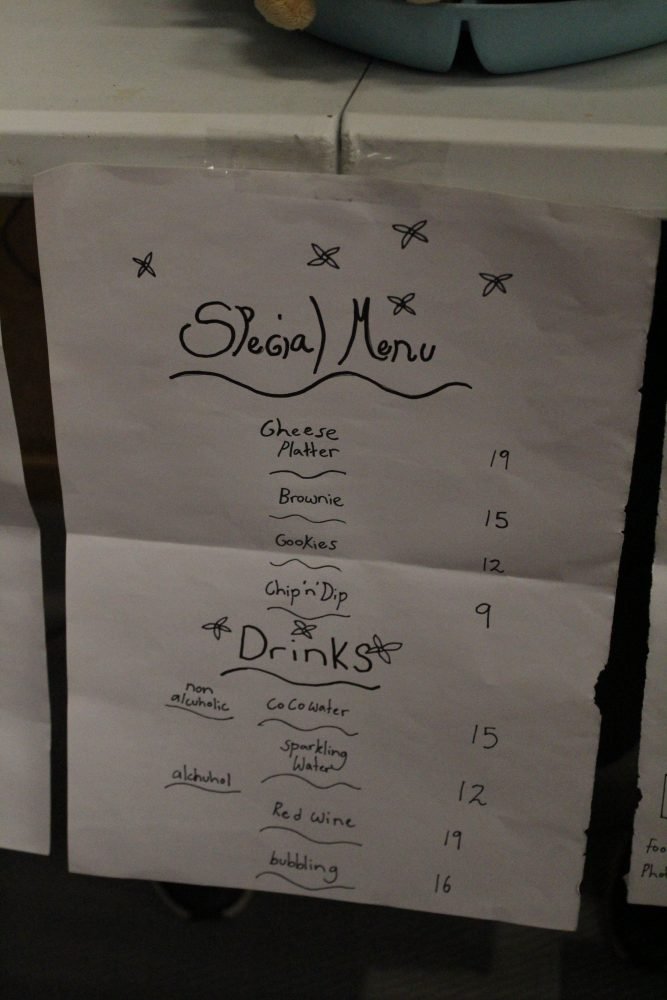 Special Menu
Gheese
Platter 19
Brownie 15
Gookies 12
Chip'n'Dip 9
Drinks
non
alcuholic CoCo water 15
sparkling
Water 12
alchuhol
Red wine 19
bubbling 16
foo
Pho